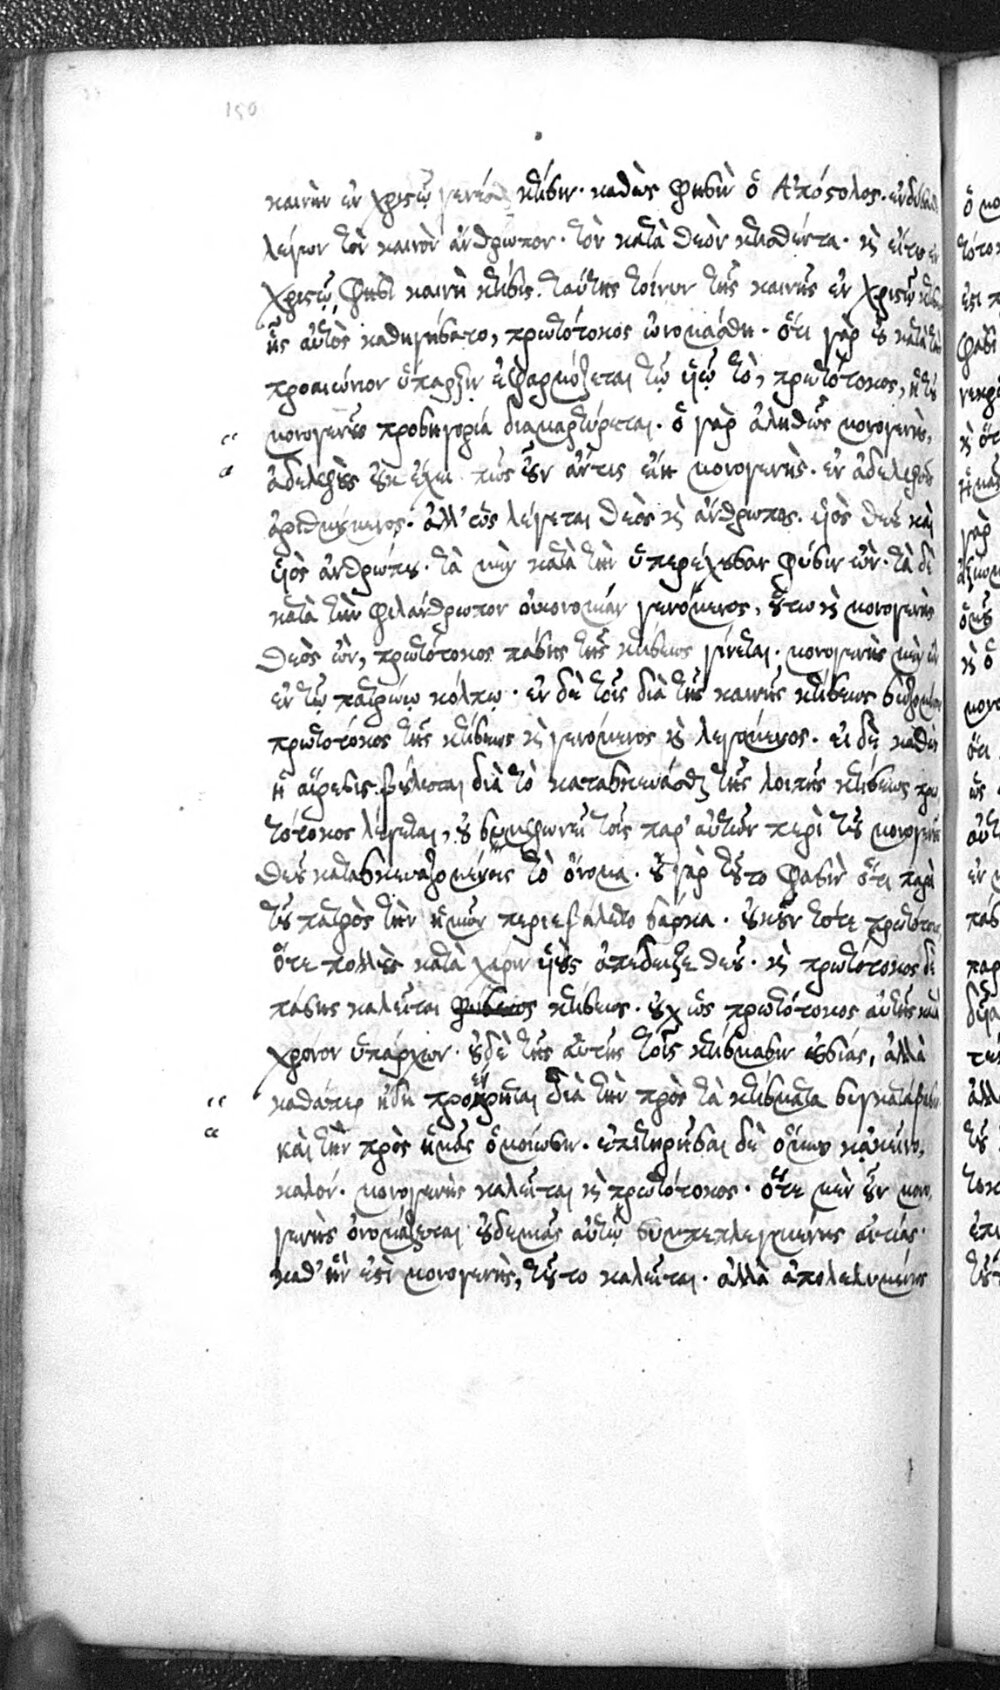 150
καινὴν ἐν χριστῷ γενέσθαι κτίσιν· καθὼς φησὶν ὁ Ἀπόστολος· ἐνδύσασθε
λέγων τὸν καινὸν ἄνθρωπον· τὸν κατὰ θεὸν κτισθέντα· καὶ εἴ τις ἐν
χριστῷ, φησὶ καινὴ κτίσις· ταύτης τοίνυν τῆς καινῆς ἐν χριστῷ κτίσεως
ἧς αὐτὸς καθηγήσατο, πρωτότοκος ὠνομάσθη· ὅτι γὰρ οὐ κατὰ τὴν
προαιώνιον ὕπαρξιν ἐφαρμόζεται τῷ υἱῷ τὸ, πρωτότοκος, ἡ τοῦ
μονογενοῦς προσηγορία διαμαρτύρεται· ὁ γὰρ ἀληθῶς μονογενὴς,
ἀδελφοὺς οὐκ ἔχει· πῶς οὖν ἄν τις εἴη μονογενὴς· ἐν ἀδελφοῖς
ἀριθμούμενος· ἀλλ' ὡς λέγεται θεὸς καὶ ἄνθρωπος· υἱὸς θεοῦ καὶ
υἱὸς ἀνθρώπου· τὰ μὲν κατὰ τὴν ὑπερέχουσαν φύσιν ὢν· τὰ δὲ
κατὰ τὴν φιλάνθρωπον οἰκονομίαν γενόμενος, οὕτω καὶ μονογενὴς
θεὸς ὢν, πρωτότοκος πάσης τῆς κτίσεως γίνεται· μονογενὴς μὲν ὢν
ἐν τῷ πατρῴῳ κόλπῳ· ἐν δὲ τοῖς διὰ τῆς καινῆς κτίσεως σωζομένοις
πρωτότοκος τῆς κτίσεως καὶ γενόμενος καὶ λεγόμενος· εἰ δὲ καθὼς
ἡ αἵρεσις βούλεται διὰ τὸ κατασκευάσθαι τῆς λοιπῆς κτίσεως πρω
τότοκος λέγεται, οὐ συμφωνεῖ τοῖς παρ' αὐτῶν περὶ τοῦ μονογενοῦς
θεοῦ κατασκευαζομένοις τὸ ὄνομα· οὐ γὰρ τοῦτο φασὶν ὅτι παρὰ
τοῦ πατρὸς τὴν ἡμῶν περιεβάλετο σάρκα· οὐκοῦν τότε πρωτότοκος,
ὅτε πολλοὺς κατὰ χάριν υἱοὺς ἀπέδειξε θεοῦ· καὶ πρωτότοκος δὲ
πάσης καλεῖται κτίσεως· οὐχ ὡς πρωτότοκος αὐτῆς κατὰ
χρόνον ὑπάρχων· οὐδὲ τῆς αὐτῆς τοῖς κτίσμασιν οὐσίας, ἀλλὰ
καθάπερ ἤδη προείρηται διὰ τὴν πρὸς τὰ κτίσματα συγκατάβασιν
καὶ τὴν πρὸς ἡμᾶς ὁμοίωσιν· ἐπιτηρῆσαι δὲ ὅμως κἀκεῖνο,
καλόν· μονογενὴς καλεῖται καὶ πρωτότοκος· ὅτε μὲν οὖν μονο
γενὴς ὀνομάζεται οὐδεμιᾶς αὐτῷ συμπεπλεγμένης αἰτίας·
καθ' ἣν ἐστὶ μονογενὴς, τοῦτο καλεῖται· ἀλλὰ ἀπολελυμένως